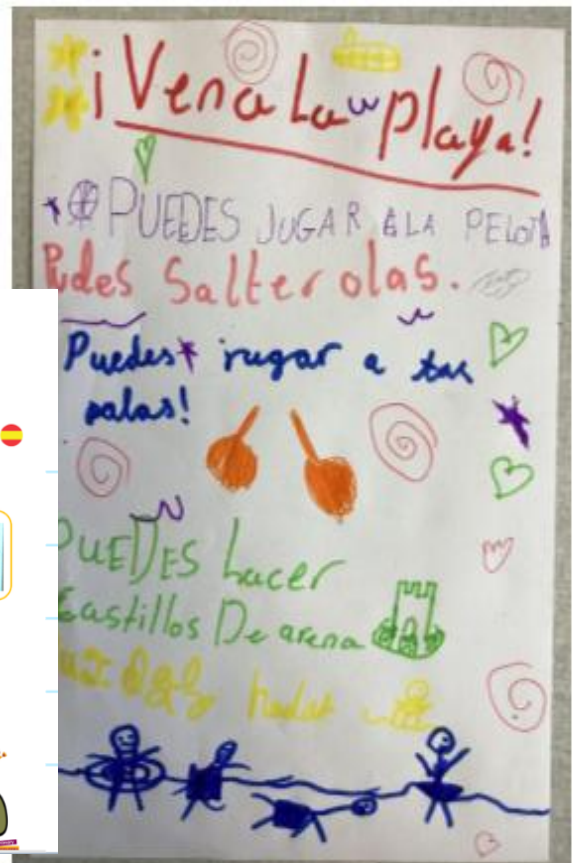 ¡Ven a La playa!
PUEDES JUGAR A LA PELOTA
Pudes Salter olas.
Puedes jugar a las
palas!
PUEDES hacer
Castillos De arena